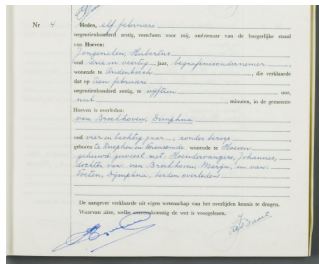 Nr 4 Heden, elf februari
negentienhonderd zestig, verscheen voor mij, ambtenaar van de burgerlijke stand
van Hoeven:
Jongenelen Hubertus
oud drie en veertig jaar, begrafenisondernemer
wonende te Oudenbosch, die verklaarde
dat op tien februari
negentienhonderd zestig, te vijftien uur,
nul minuten, in de gemeente
Hoeven is overleden:
van Broekhoven, Dimphna
oud vier en tachtig jaar, zonder beroep
geboren te wonende te Hoeven
gehuwd geweest met: Johannes,
dochter van: van Broekhoven, en van
Dijmphna, beiden overleden
De aangever verklaarde uit eigen wetenschap van het overlijden kennis te dragen.
Waarvan akte, welke overeenkomstig de wet is voorgelezen.